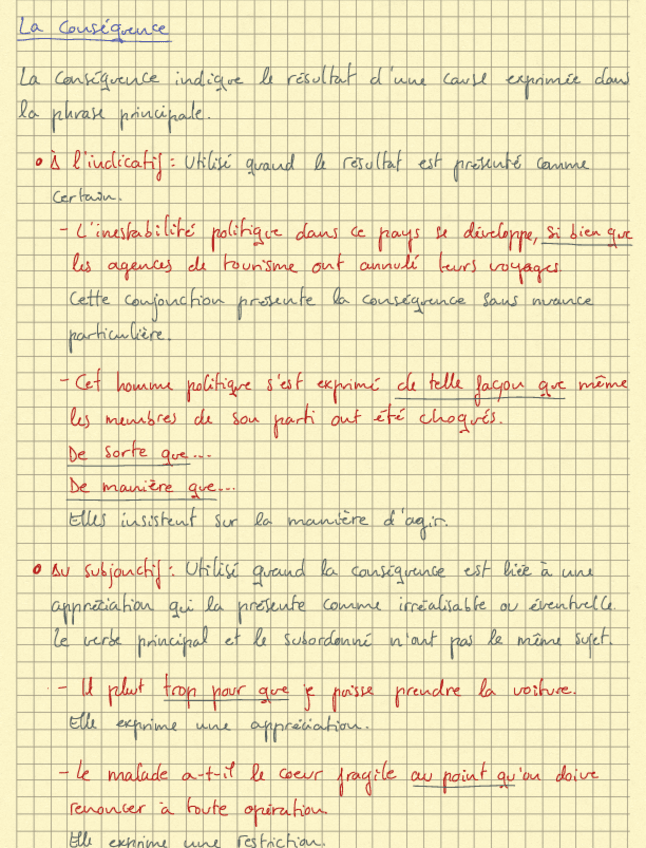 La Conséquence
La conséquence indique le résultat d'une cause exprimée dans
la phrase principale.
• À l'indicatif : Utilisé quand le résultat est présenté comme
certain.
- L'inestabilité politique dans ce pays se développe, si bien que
les agences de tourisme ont annulé leurs voyages.
Cette conjonction présente la conséquence sans nuance
particulière.
- Cet homme politique s'est exprimé de telle façon que même
les membres de son parti ont été choqués.
De sorte que...
De manière que...
Elles insistent sur la manière d'agir.
• Au subjonctif : Utilisé quand la conséquence est liée à une
appréciation qui la présente comme irréalisable ou éventuelle.
Le verbe principal et le subordonné n'ont pas le même sujet.
- Il pleut trop pour que je puisse prendre la voiture.
Elle exprime une appréciation.
- Le malade a-t-il le coeur fragile au point qu'on doive
renoncer à toute opération.
Elle exprime une restriction.